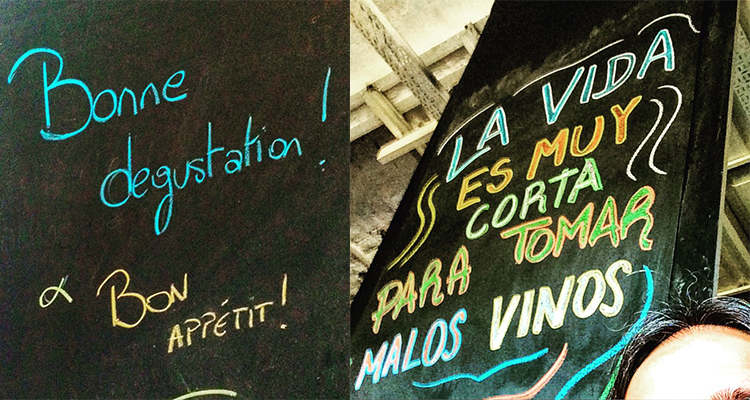 Bonne
degustation!
& BON
APPÉTIT!
LA VIDA
ES MUY
CORTA
PARA TOMAR
MALOS VINOS